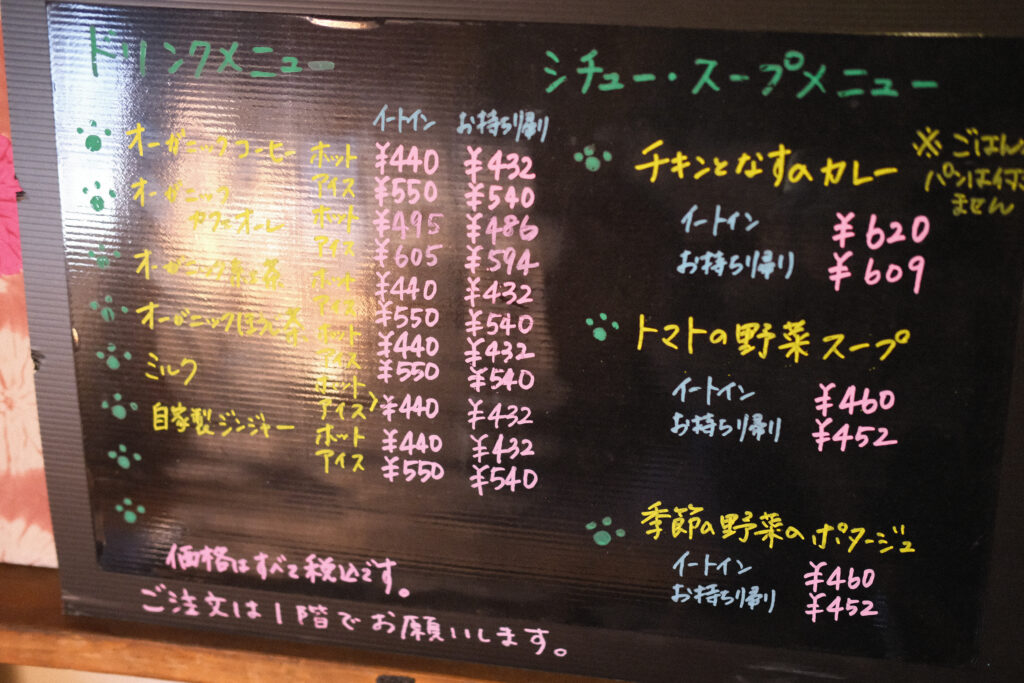 ドリンクメニュー
イートイン お持ち帰り
オーガニックコーヒー ホット ¥440 ¥432
アイス ¥550 ¥540
オーガニック カフェオーレ ホット ¥495 ¥486
アイス ¥605 ¥594
オーガニック 茶 ホット ¥440 ¥432
アイス ¥550 ¥540
オーガニックほうじ茶 ホット ¥440 ¥432
アイス ¥550 ¥540
ミルク ホット
アイス ¥440 ¥432
自家製ジンジャー ホット ¥440 ¥432
アイス ¥550 ¥540
価格はすべて税込です。
ご注文は1階でお願いします。
シチュー・スープメニュー
チキンとなすのカレー
※ごはん
パンは付
ません
イートイン ¥620
お持ち帰り ¥609
トマトの野菜スープ
イートイン ¥460
お持ち帰り ¥452
季節の野菜のポタージュ
イートイン ¥460
お持ち帰り ¥452